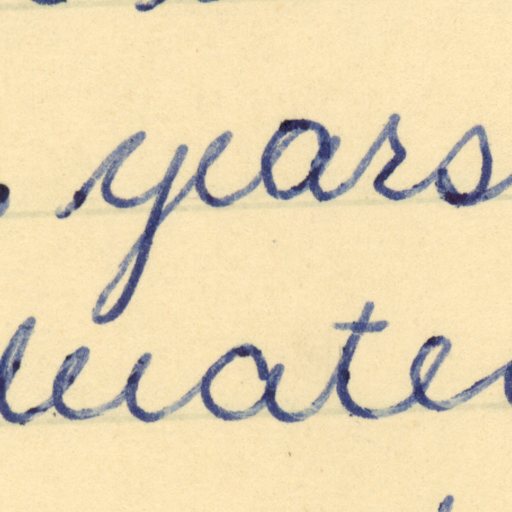 years
uate